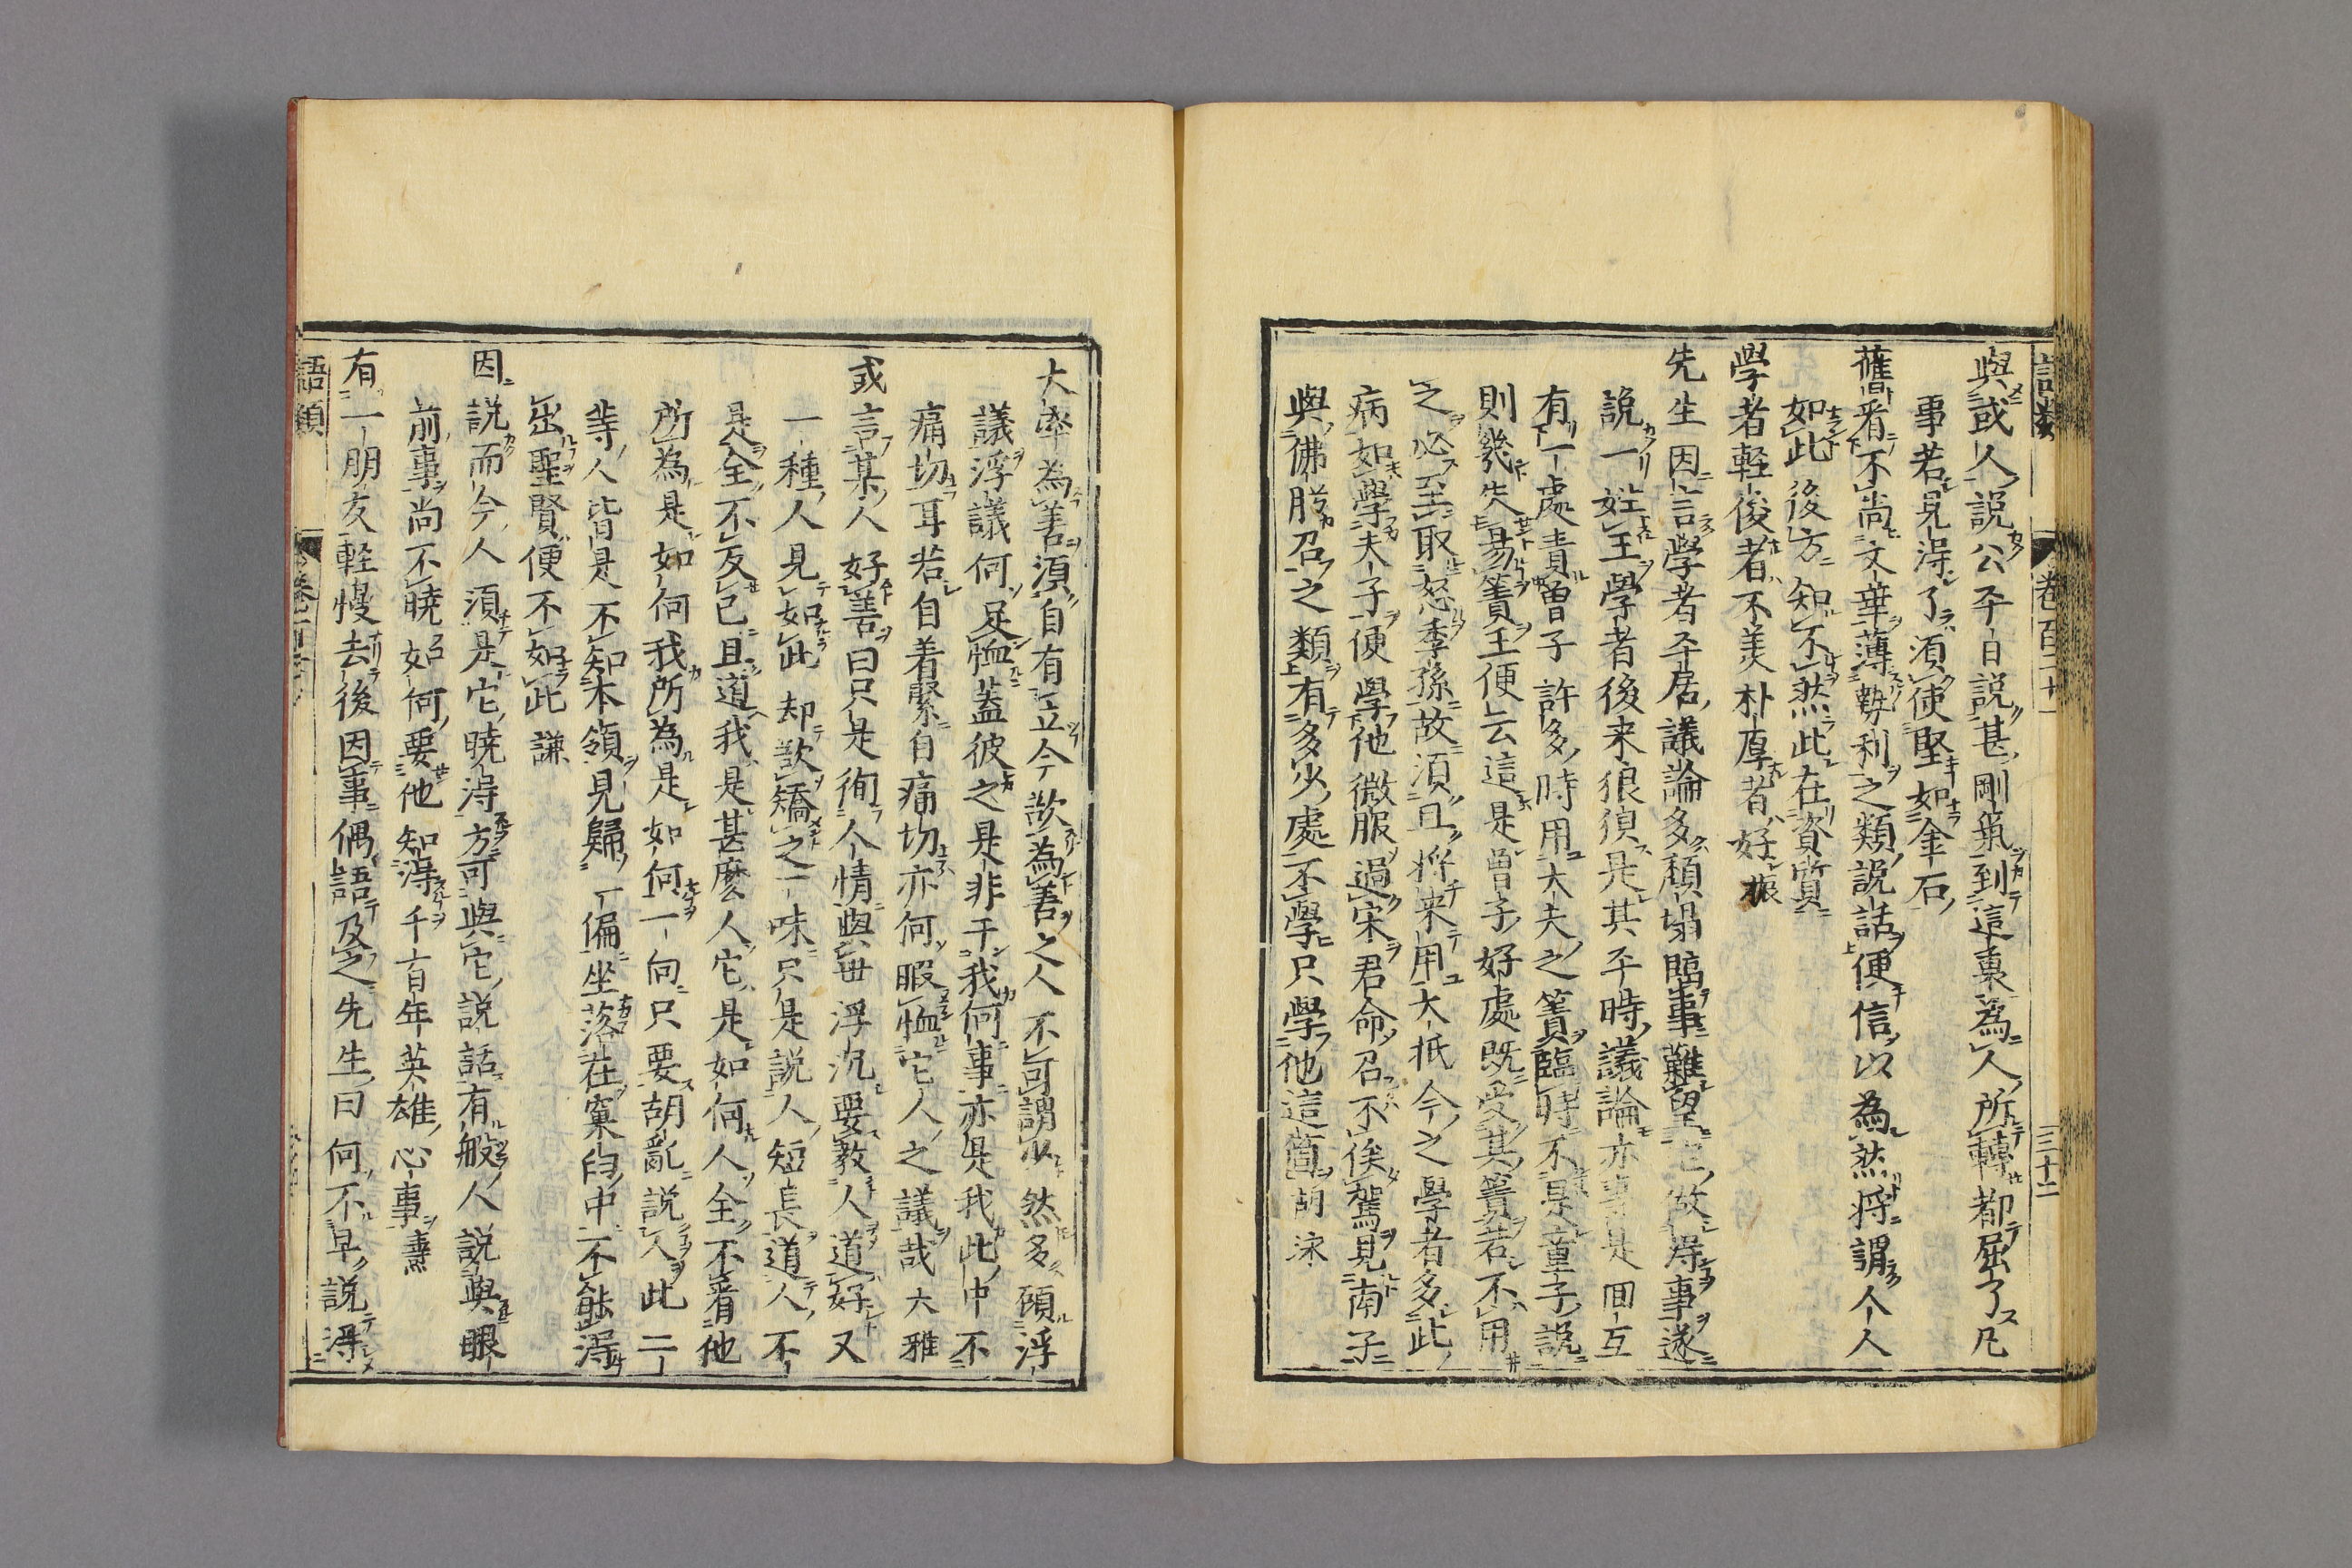 語類 卷百二十一 三十二
與或人說公平日說甚剛氣到這裏為人所轉都屈了凡
事若見得了須使堅如金石
舊看不尚文華薄勢利之類說話便信以為然將謂个人
如此後方知不然此在資質
學者輕俊者不美朴厚者好振
先生因言學者平居議論多頹塌臨事難望它做得事遂
說一姓王學者後来狼狽是其平時議論亦專是囬互
有一處責曽子許多時用大夫之簀臨時不是童子說
則幾失易簀王便云這是曽子好處既受其簀若不用
之必至取怒季孫故須且將来用大抵今之學者多此
病如學夫子便學他微服過宋君命召不俟駕見南子
與佛肸召之類有多少處不學只學他這箇胡泳
大率為善須自有立今欲為善之人不可謂少然多顧浮
議浮議何足恤蓋彼之是非干我何事亦是我此中不
痛切耳若自着緊自痛切亦何暇恤它人之議哉大雅
或言某人好善曰只是徇人情與世浮沉要教人道好又
一種人見如此却欲矯之一味只是說人短長道人不
是全不反己且道我是甚麼人它是如何人全不看他
所為是如何我所為是如何一向只要胡亂說人此二
等人皆是不知本領見歸一偏坐落在窠臼中不能得
出聖賢便不如此謙
因說而今人須是它曉得方可與它說話有般人說與眼
前事尚不曉如何要他知得千百年英雄心事燾
有一朋友輕慢去後因事偶語及之先生曰何不早說得
語類 卷百二十一